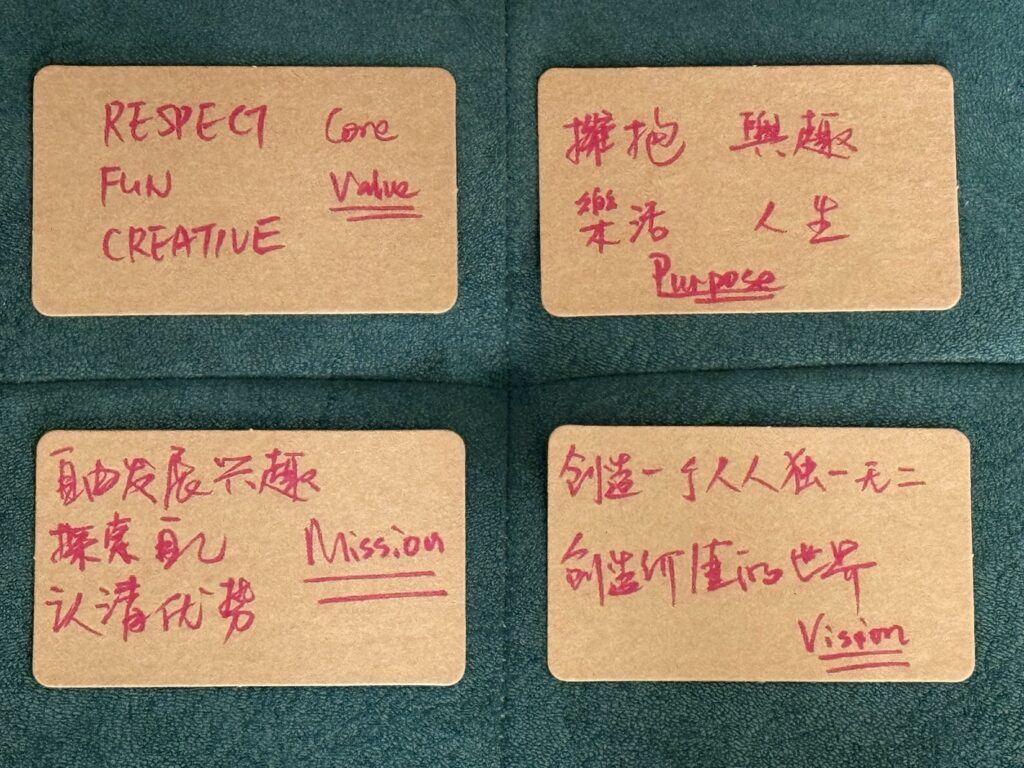 RESPECT Core
FUN Value
CREATIVE
擁抱 興趣
樂活 人生
Purpose
自由发展兴趣
探索自己 Mission
认清优势
创造一个人人独一无二
创造价值的世界
Vision